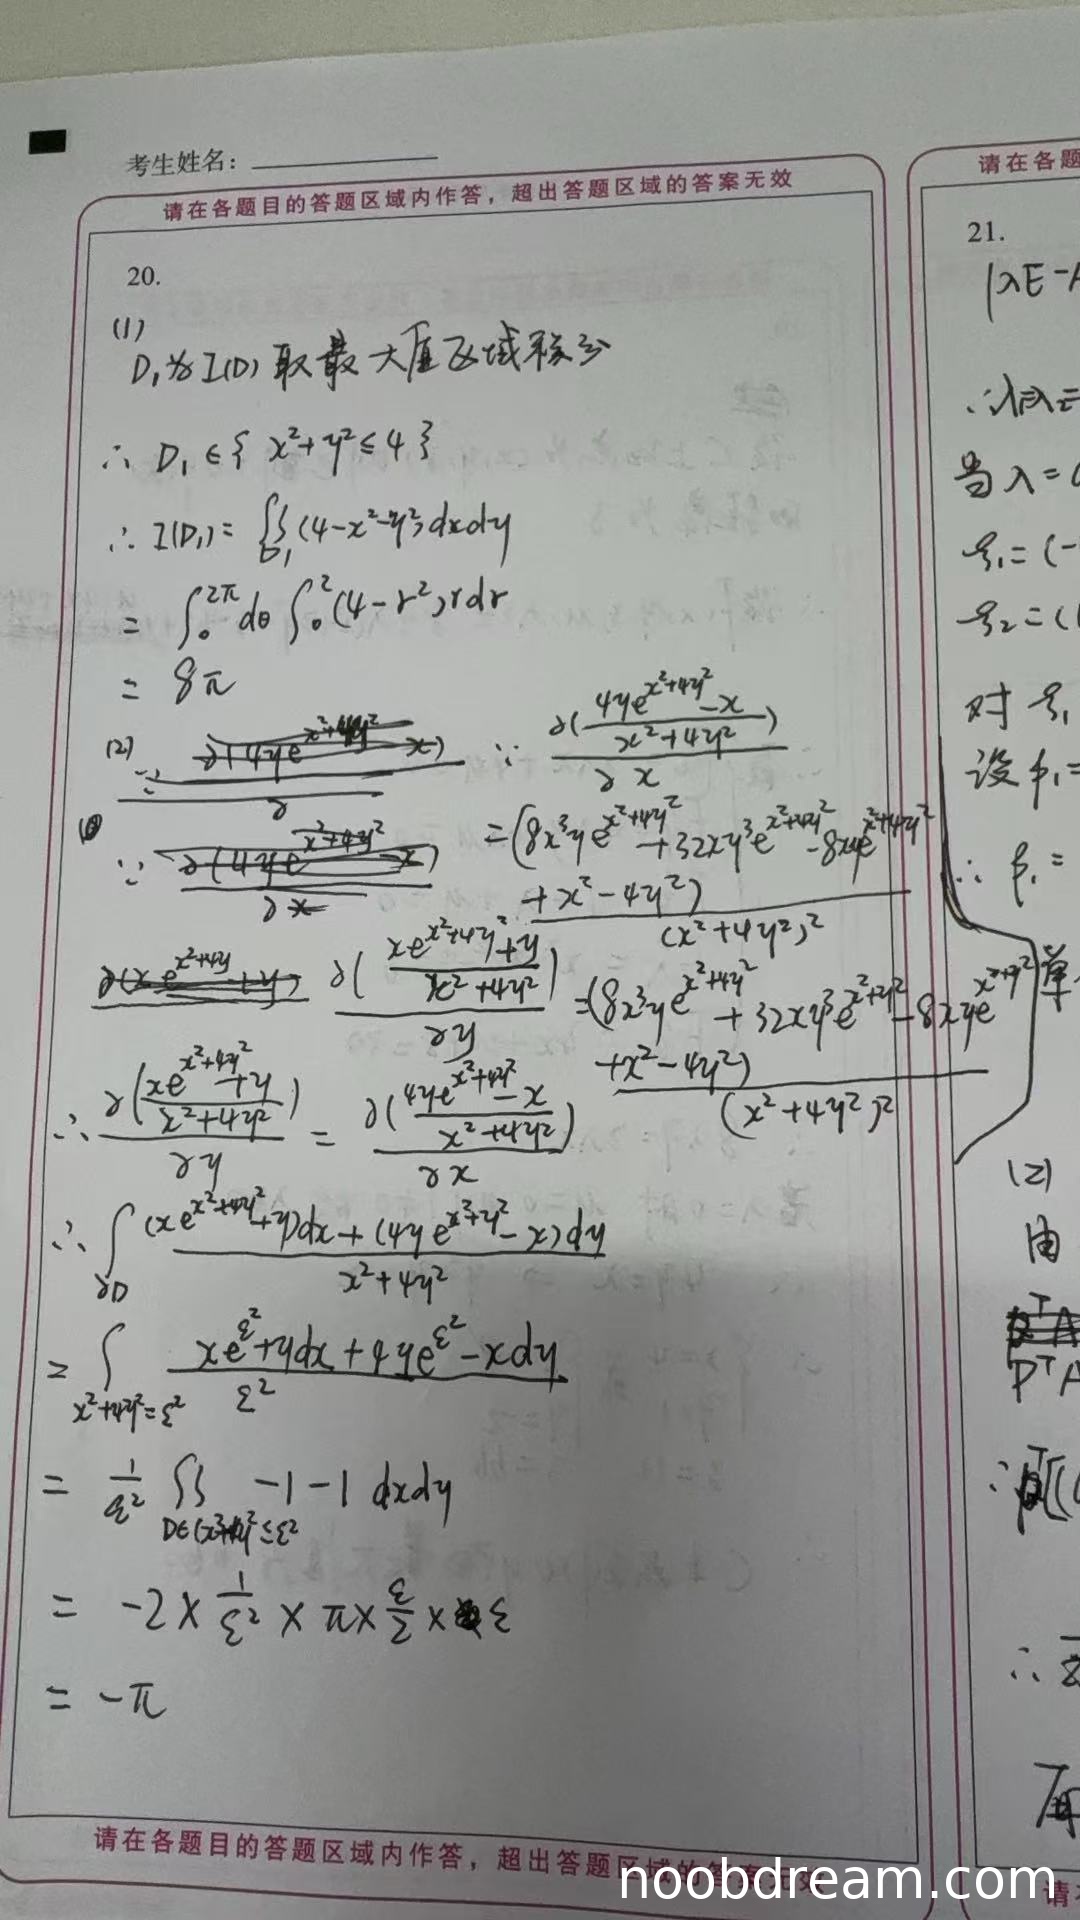 考生姓名：
请在各题目的答题区域内作答，超出答题区域的答案无效
20.
(1)
D₁为I(D)取最大值区域积分
∴ D₁∈{ x²+y²≤4 }
∴ I(D₁) = ∬_D₁ (4-x²-y²) dxdy
= ∫₀^2π dθ ∫₀² (4-r²) r dr
= 8π
(2) ∵ ∂((4ye^(x²+4y²) - x)/(x²+4y²))/∂x
= (8x³ye^(x²+4y²) + 32xy³e^(x²+4y²) - 8xye^(x²+4y²) + x² - 4y²)/(x²+4y²)²
∂((xe^(x²+4y²) + y)/(x²+4y²))/∂y = (8x³ye^(x²+4y²) + 32xy³e^(x²+y²) - 8xye^(x²+y²) + x² - 4y²)/(x²+4y²)²
∴ ∂((xe^(x²+4y²) + y)/(x²+4y²))/∂y = ∂((4ye^(x²+4y²) - x)/(x²+4y²))/∂x
∴ ∫_∂D ((xe^(x²+4y²) + y)dx + (4ye^(x²+y²) - x)dy)/(x²+4y²)
= ∫_(x²+4y²=ε²) (xe^ε² + ydx + 4ye^ε² - xdy)/ε²
= 1/ε² ∬_(D∈(x²+4y²≤ε²)) -1-1 dxdy
= -2 × 1/ε² × π × ε/2 × ε
= -π
请在各题目的答题区域内作答，超出答题区域的答案无效
请在各题
21.
|λE-A
当λ=0
ξ₁=(-
ξ₂=(1
对ξ₁
设β₁=
∴ β₁=
单
(2)
由
PᵀA
∴
再
请在
noobdream.com